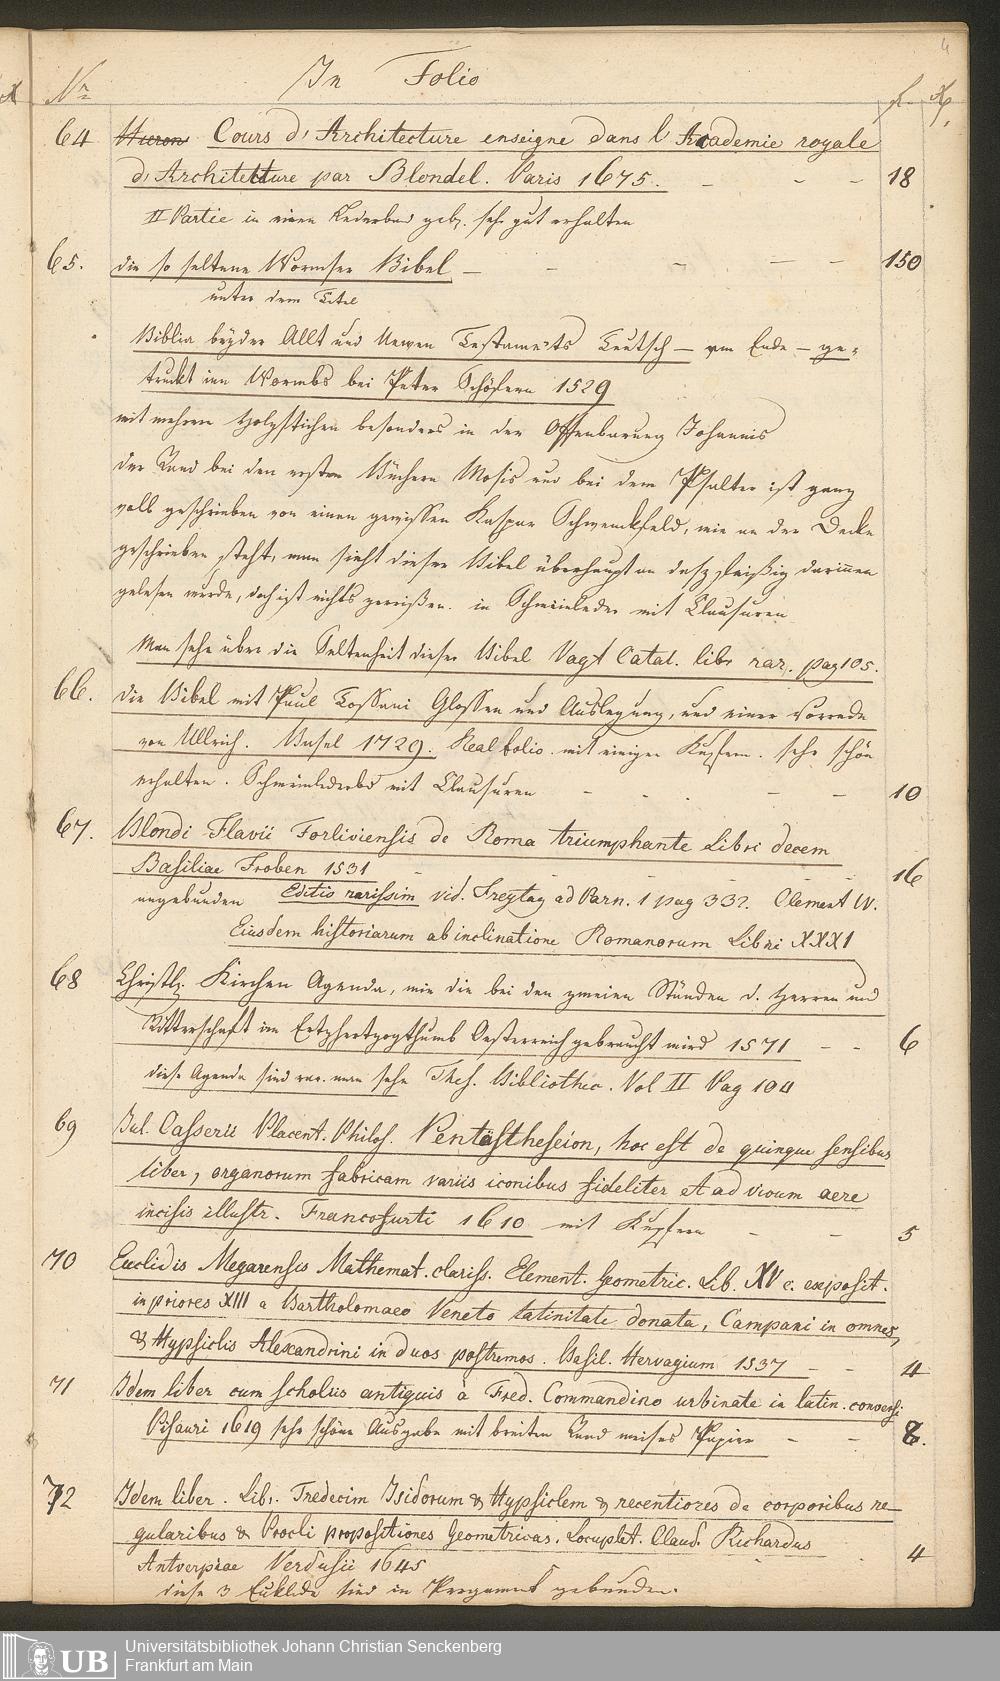 4
Nr. In Folio f. x.
64 Hieron Cours d'Architecture enseigne dans l'Academie royale
d'Architetture par Blondel. Paris 1675. – – – 18
II Partie in einem Lederband geb. sehr gut erhalten
65. die so seltene Wormser Bibel – – – – – 150
unter dem Titel
Biblia beyder Allt und Newen Testaments Teutsch – am Ende – ge-
truckt inn Wormbs bei Peter Schöfern 1529
mit mehren Holzstichen besonders in der Offenbarung Johannis
der Rand bei den ersten Büchern Mosis und bei dem Psalter ist ganz
voll geschrieben von einem gewissen Kaspar Schwenckfeld, wie an der Decke
geschrieben steht, man sieht dieser Bibel überhaupt an dasz fleißig darinnen
gelesen wurde, doch ist nichts zerrißen. in Schweinleder mit Clausuren
Man sehe über die Seltenheit dieser Bibel Vogt Catal. libr rar. pag 105.
66. die Bibel mit Paul Tossani Glossen und Auslegung, und einer Vorrede
von Ullrich. Basel 1729. Real folio. mit einigen Kupfern. sehr schön
erhalten. Schweinlederbd mit Clausuren – – – – 10
67. Blondi Flavii Forliviensis de Roma triumphante Libri decem
Basiliae Froben 1531 – – – 16
angebunden Editio rarissim vid. Freytag ad Parn. 1 pag 332. Clement IV.
Eiusdem historiarum ab inclinatione Romanorum Libri XXXI
68 Christl. Kirchen Agenda, wie die bei den zweien Ständen d. Herren und
Ritterschaft im Ertzhertzogthumb Oesterreich gebraucht wird 1571 – – 6
diese Agenda sind rar. man sehe Thes. Bibliothec. Vol II Pag 104
69 Jul. Casserii Placent. Philos. Pentästheseion, hoc est de quinque sensibus
liber, organorum fabricam variis iconibus fideliter et ad vivum aere
incisis illustr. Francofurti 1610 mit Kupfern – – 5
70 Euclidis Megarensis Mathemat. clariss. Element. Geometric. Lib. XV c. exposit.
in priores XIII a Bartholomaeo Veneto latinitate donata, Campani in omnes,
& Hypsiclis Alexandrini in duos postremos. Basil. Hervagium 1537 – – 4
71 Idem liber cum scholiis antiquis à Fred. Commandino urbinate in latin. conversi
Pisauri 1619 sehr schöne Ausgabe mit breiten Rand weises Papier – – 8.
72 Idem liber. Lib. Tredecim Isidorum & Hypsiclem & recentiores de corporibus re-
gularibus & Procli propositiones Geometricas. Locuplet. Claud. Richardus
Antverpiae Verdusii 1645 4
diese 3 Euklide sind in Pergament gebunden.
UB Universitätsbibliothek Johann Christian Senckenberg
Frankfurt am Main